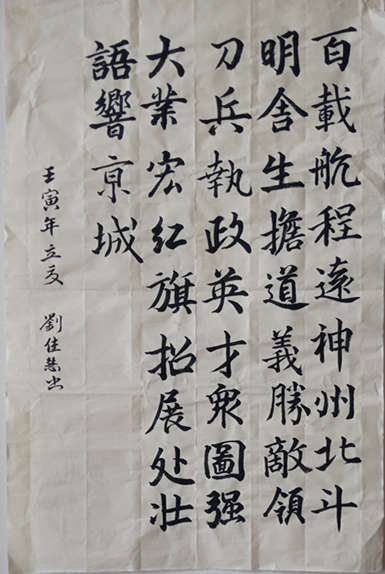 百載航程遠神州北斗
明舍生擔道義勝敵領
刀兵執政英才衆圖强
大業宏紅旗招展处壮
語響京城
壬寅年立夏 劉佳慧书